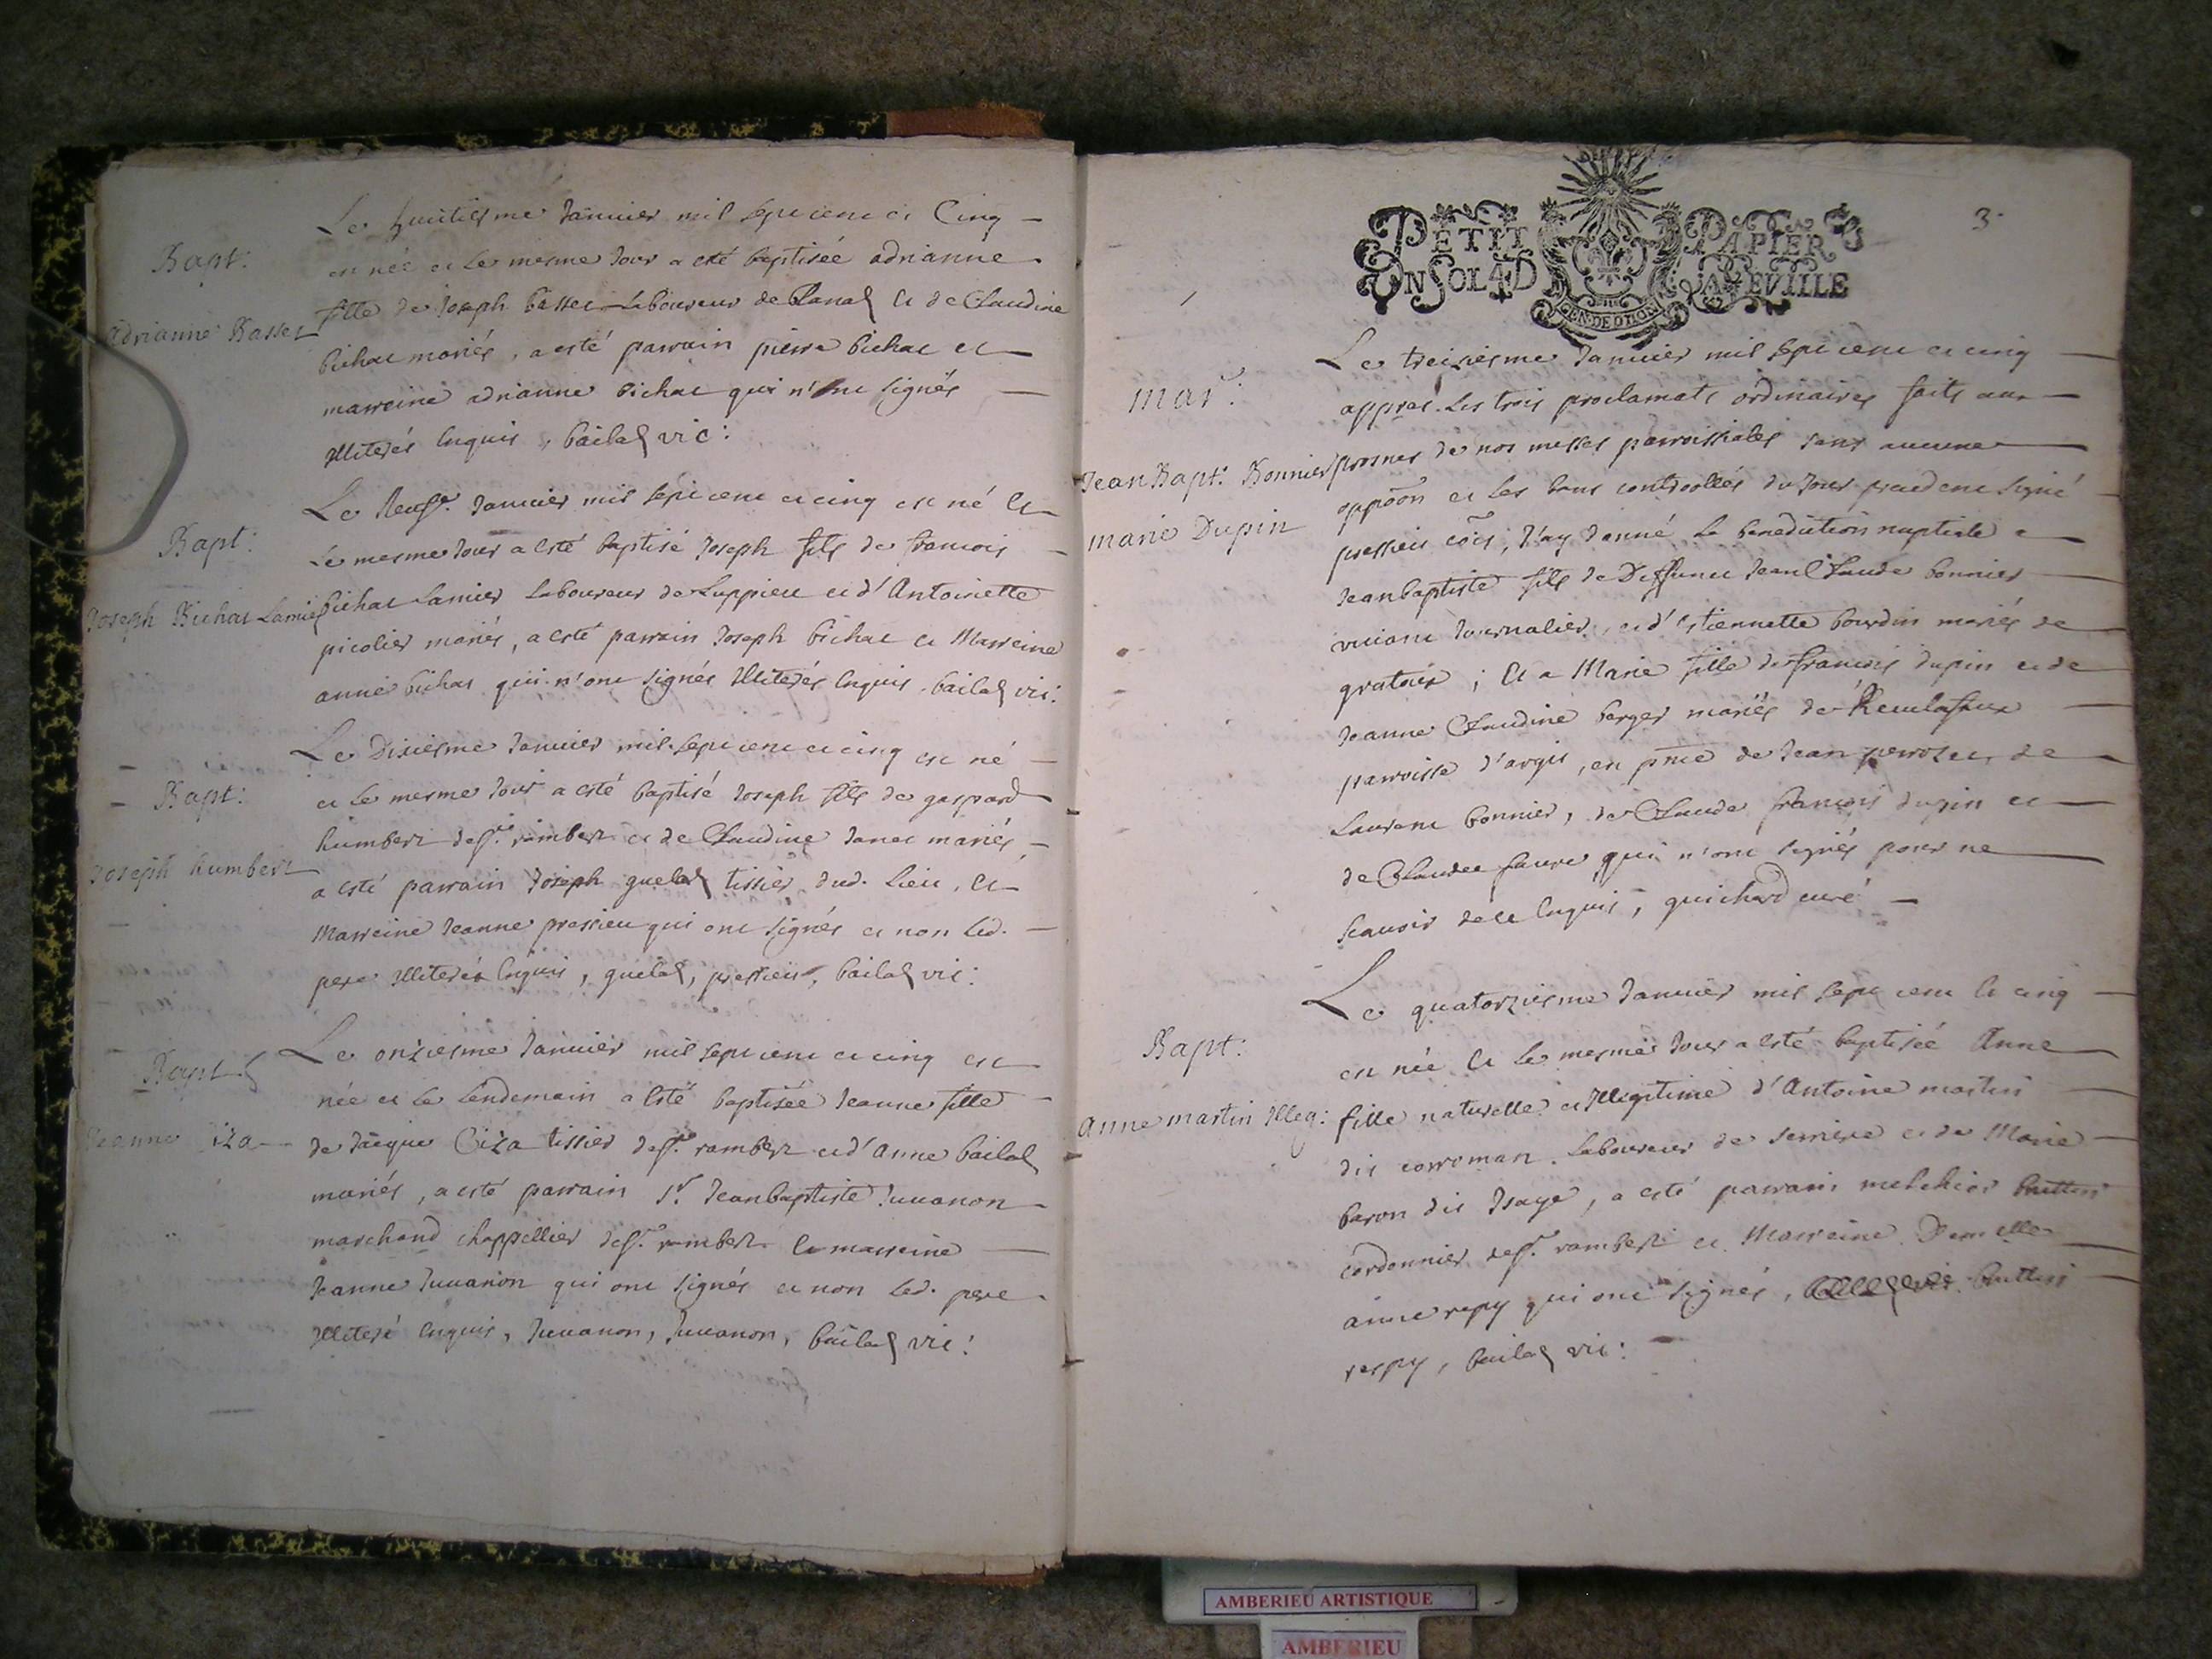 Bapt:
Adrianne Basset
Le huitiesme Januier mil sept cent et Cinq
est née et Le mesme Jour a esté baptisée adrianne
fille de Joseph basset Laboureur de blanaz et de Claudine
bichat mariés, a esté parrain pierre bichat et
marreine adrianne bichat qui n'ont signés
Illiterés Enquis, bailad vic:
Bapt:
Joseph Bichat Lamier
Le Neufe. Januier mil sept cent et cinq est né et
Le mesme Jour a esté baptisé Joseph fils de francois
bichat Lamier Laboureur de Luppieu et d'Antoinette
picolier mariés, a esté parrain Joseph bichat et Marreine
anne bichat qui n'ont signés Illiterés Enquis. bailad vic:
Bapt:
Joseph humbert
Le Dixiesme Januier mil sept cent et cinq est né
et Le mesme Jour a esté baptisé Joseph fils de gaspard
humbert de st. rambert et de Claudine Janet mariés,
a esté parrain Joseph guelad tissier dud. Lieu, et
Marreine Jeanne pressieu qui ont signés et non Led.
pere Illiteré Enquis, guelad, pressieu, bailad vic:
Bapt
Jeanne Ciza
Le onziesme Januier mil sept cent et cinq est
née et Le Lendemain a esté baptisée Jeanne fille
de Jacque Ciza tissier de st. rambert et d'Anne bailad
mariés, a esté parrain sr. Jean baptiste Juuanon
marchand chappellier de st. rambert et marreine
Jeanne Juuanon qui ont signés et non Led. pere
Illiteré Enquis, Juuanon, Juuanon, bailad vic:
3.
PETIT PAPIER
UN SOL 4 D LA FEVILLE
GEN. DE DIION
Mar:
Jean Bapt: Bonnier
marie Dupin
Le treiziesme Januier mil sept cent et cinq
appres Les trois proclamats ordinaires faits aux
prosnes de nos messes parroissiales sans aucune
oppoon et Les bans controollés du Jour precedent signé
pressieu cois, J'ay donné La benediction nuptiale a
Jean baptiste fils de Deffunct Jean Claude bonnier
viuant Journalier, et d'Estiennette bourdin mariés de
gratoux; Et a Marie fille de francois dupin et de
Jeanne Claudine berger mariés de
parroisse d'argis, en pnce de Jean perrozet, de
Laurent bonnier, de Claude francois dupin et
de Claude faure qui n'ont signés pour ne
scauoir de ce Enquis, guichard curé
Bapt:
Anne martin Illeg:
Le quatorziesme Januier mil sept cent et cinq
est née et Le mesme Jour a esté baptisée Anne
fille naturelle et Illegitime d'Antoine martin
dit corroman Laboureur de serriere et de Marie
baron dit Isaye, a esté parrain melchior buttin
cordonnier de st. rambert et Marreine Demelle
anne repy qui ont signés, buttin
respy, bailad vic:
AMBERIEU ARTISTIQUE
AMBERIEU